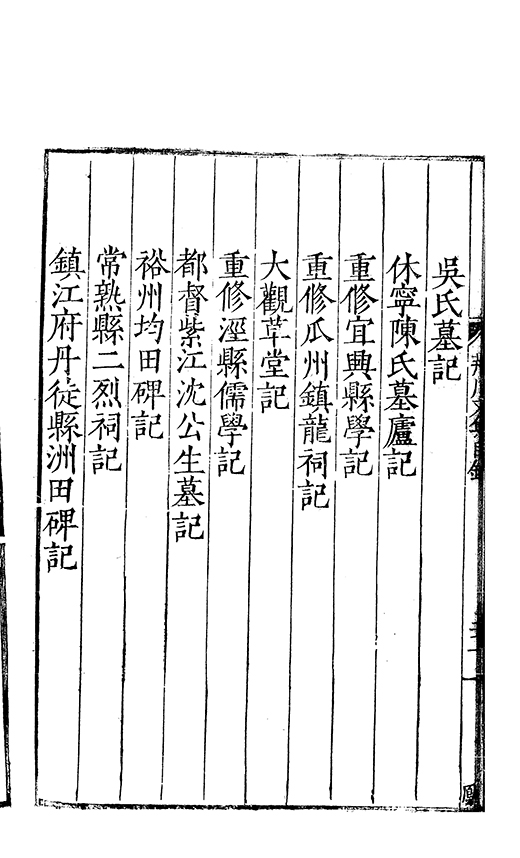 吳氏墓記
休寧陳氏墓廬記
重修宜興縣學記
重修瓜州鎮龍祠記
大觀草堂記
重修涇縣儒學記
都督紫江沈公生墓記
裕州均田碑記
常熟縣二烈祠記
鎮江府丹徒縣洲田碑記